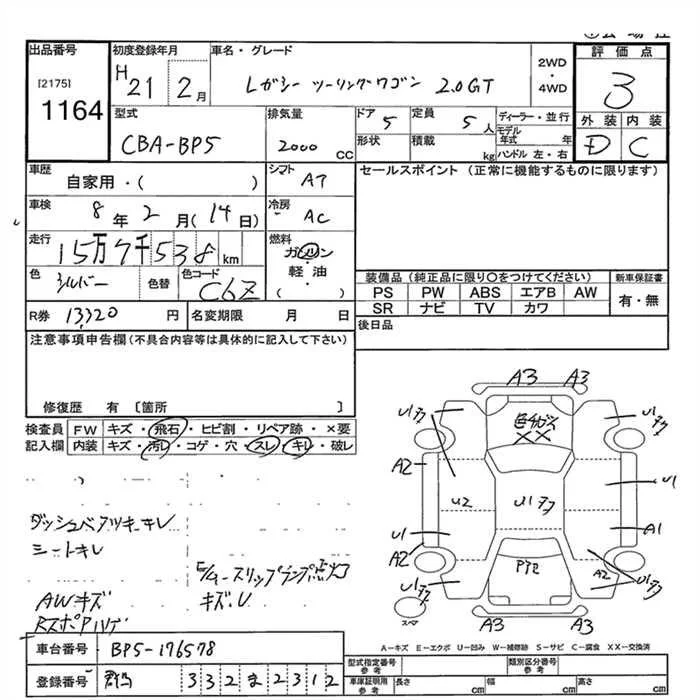 出品番号
初度登録年月
車名・グレード
評価点
[2175]
1164
H21 2月
レガシー ツーリングワゴン 2.0GT
2WD
・
4WD
3
型式
CBA-BP5
排気量
2000 CC
ドア
5
定員
5人
ディーラー・並行
モデル年式 年
形状
積載
kg
ハンドル 左・右
外装
内装
D
C
車歴
自家用・( )
シフト
AT
セールスポイント (正常に機能するものに限ります)
車検
8年2月(14日)
冷房
AC
走行
15万7千538km
燃料
ガソリン
・
軽油
( )
色
シルバー
色替
色コード
C6Z
装備品 (純正品に限り〇をつけてください)
新車保証書
PS
PW
ABS
エアB
AW
有・無
SR
ナビ
TV
カワ
R券
13320円
名変期限 月 日
後日品
注意事項申告欄(不具合内容等は具体的に記入して下さい)
修復歴 有 〔箇所 〕
検査員
記入欄
FW
キズ・飛石・ヒビ割・リペア跡・×要
内装
キズ・汚レ・コゲ・穴・スレ・キレ・破レ
シートキレ
AWキズ
キズ.U
A3
A3
U1
A2
U2
U1
U1
U1
A2
A1
A2
A3
A3
スペア
A-キズ E-エクボ U-凹み W-補修跡 S-サビ C-腐食 XX-交換済
車台番号
BP5-176578
登録番号
332ま2312
型式指定番号
参考
類別区分番号
参考
車庫証明用
参考
長さ cm
幅 cm
高さ cm